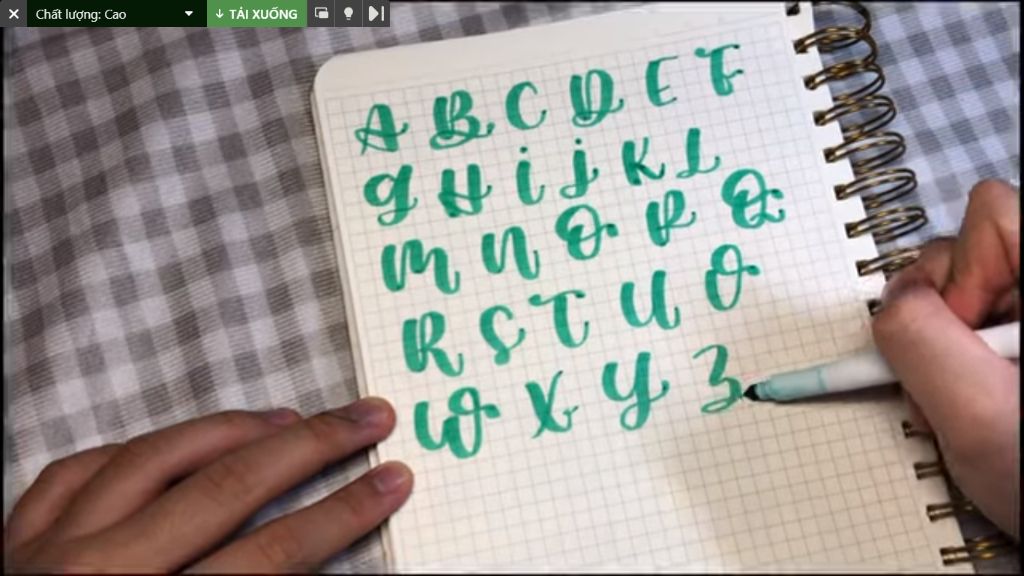 Chất lượng: Cao TẢI XUỐNG
A B C D E F
G H I J K L
M N O P Q
R S T U V
W X Y Z